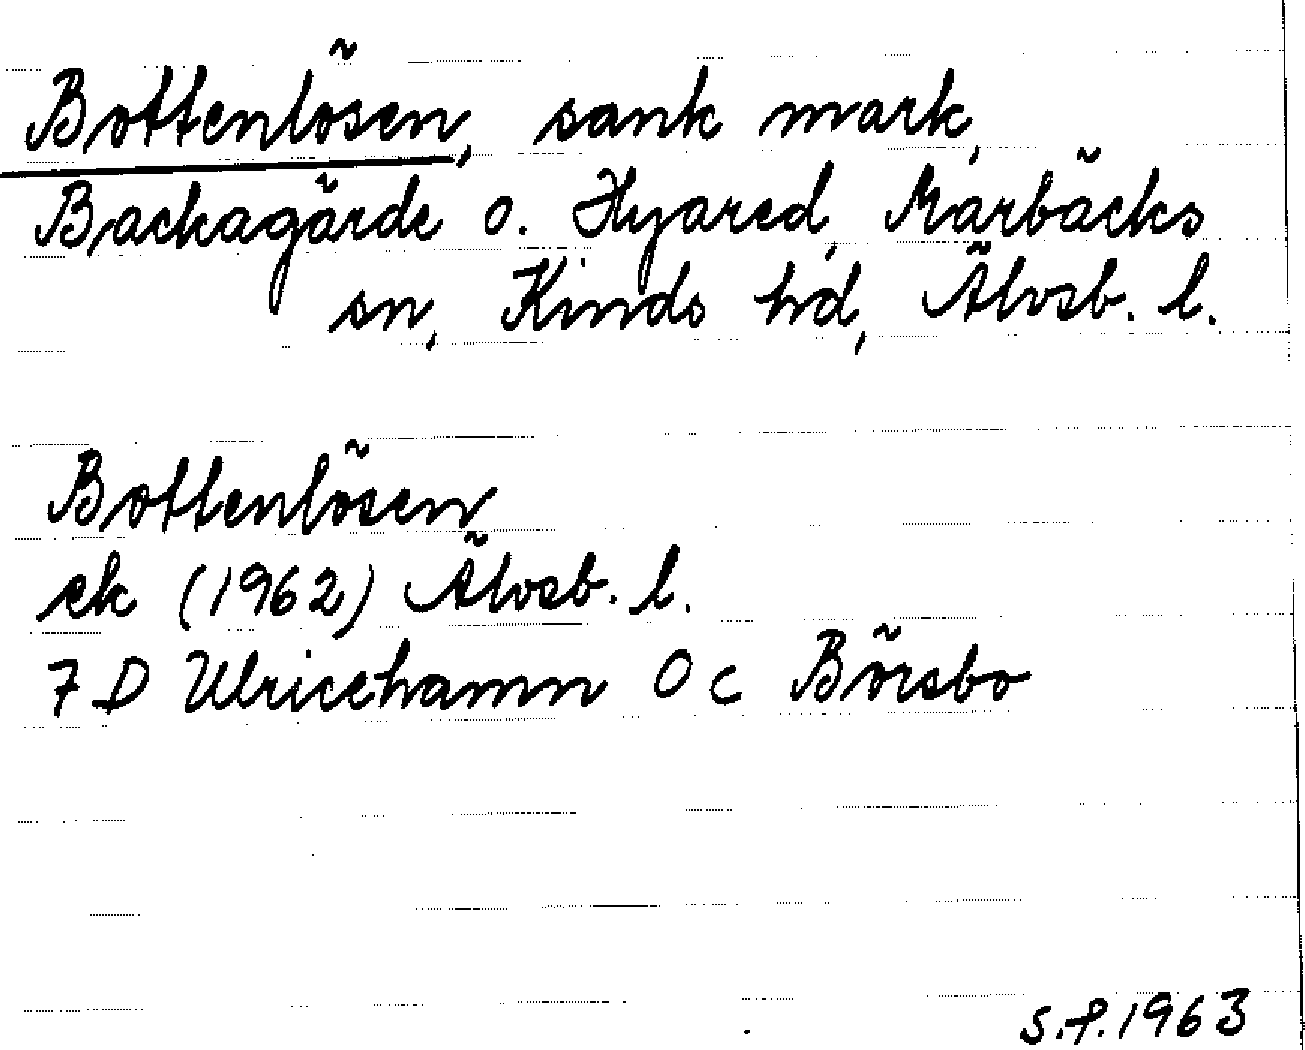 Bottenlösen, sank mark,
Backagärde o. Hyared, Marbäcks
sn, Kinds hd, Älvsb. l.
Bottenlösen
ek (1962) Älvsb. l.
7 D Ulricehamn 0 c Börsbo
S.F. 1963